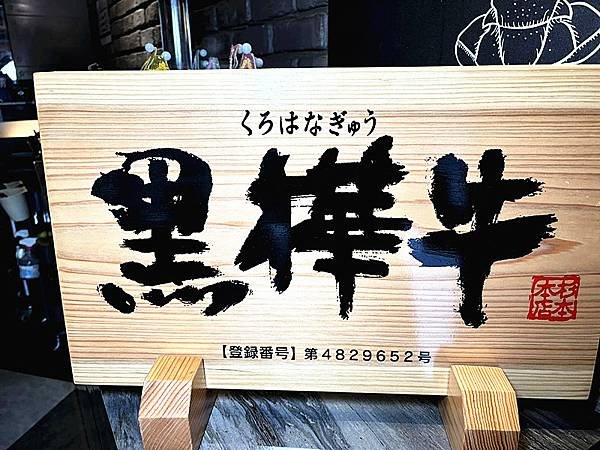 くろはなぎゅう
黒樺牛
杉本本店
【登録番号】第4829652号